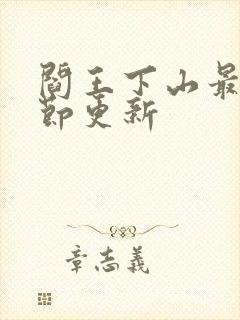 閻王下山最
節更新
章志義